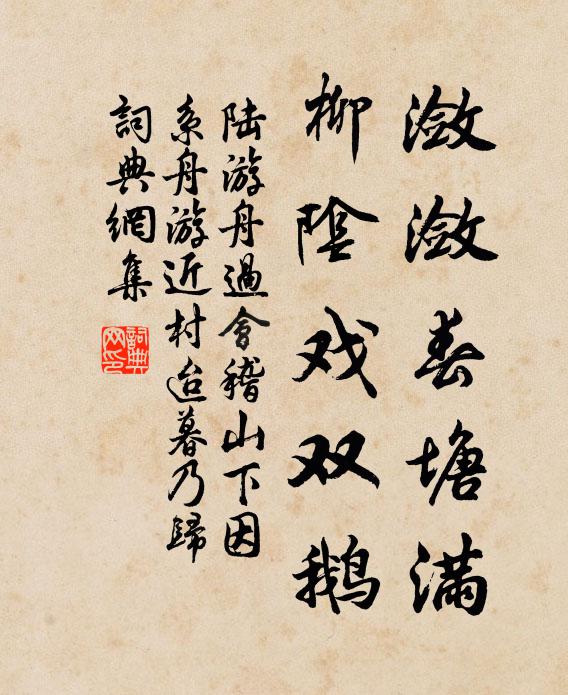 潋潋春塘满
柳陰戏双鹅
陆游舟過會稽山下因
系舟游近村迨暮乃歸
詞典網集
詞典
网印